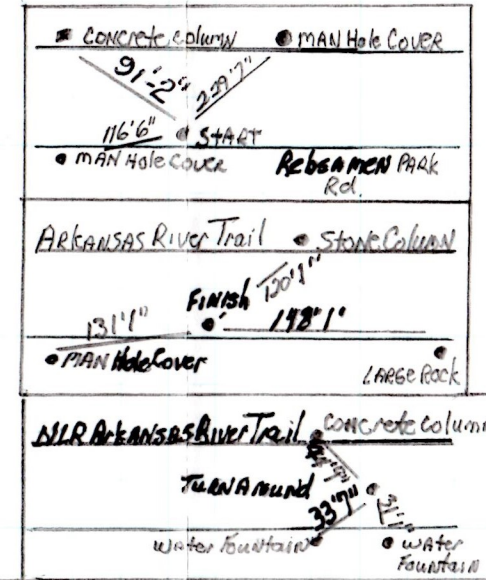 Concrete column MAN Hole COVER
91'-2" 229'7"
116'6" START
MAN Hole COVER Rebsamen PARK
Rd.
ARKANSAS River Trail Stone Column
FINISH 120'1"
131'1" 148'1"
MAN Hole Cover
LARGE Rock
NLR ARKANSAS River Trail Concrete Column
TURN Around
33'7" 31'1"
water Fountain water
Fountain